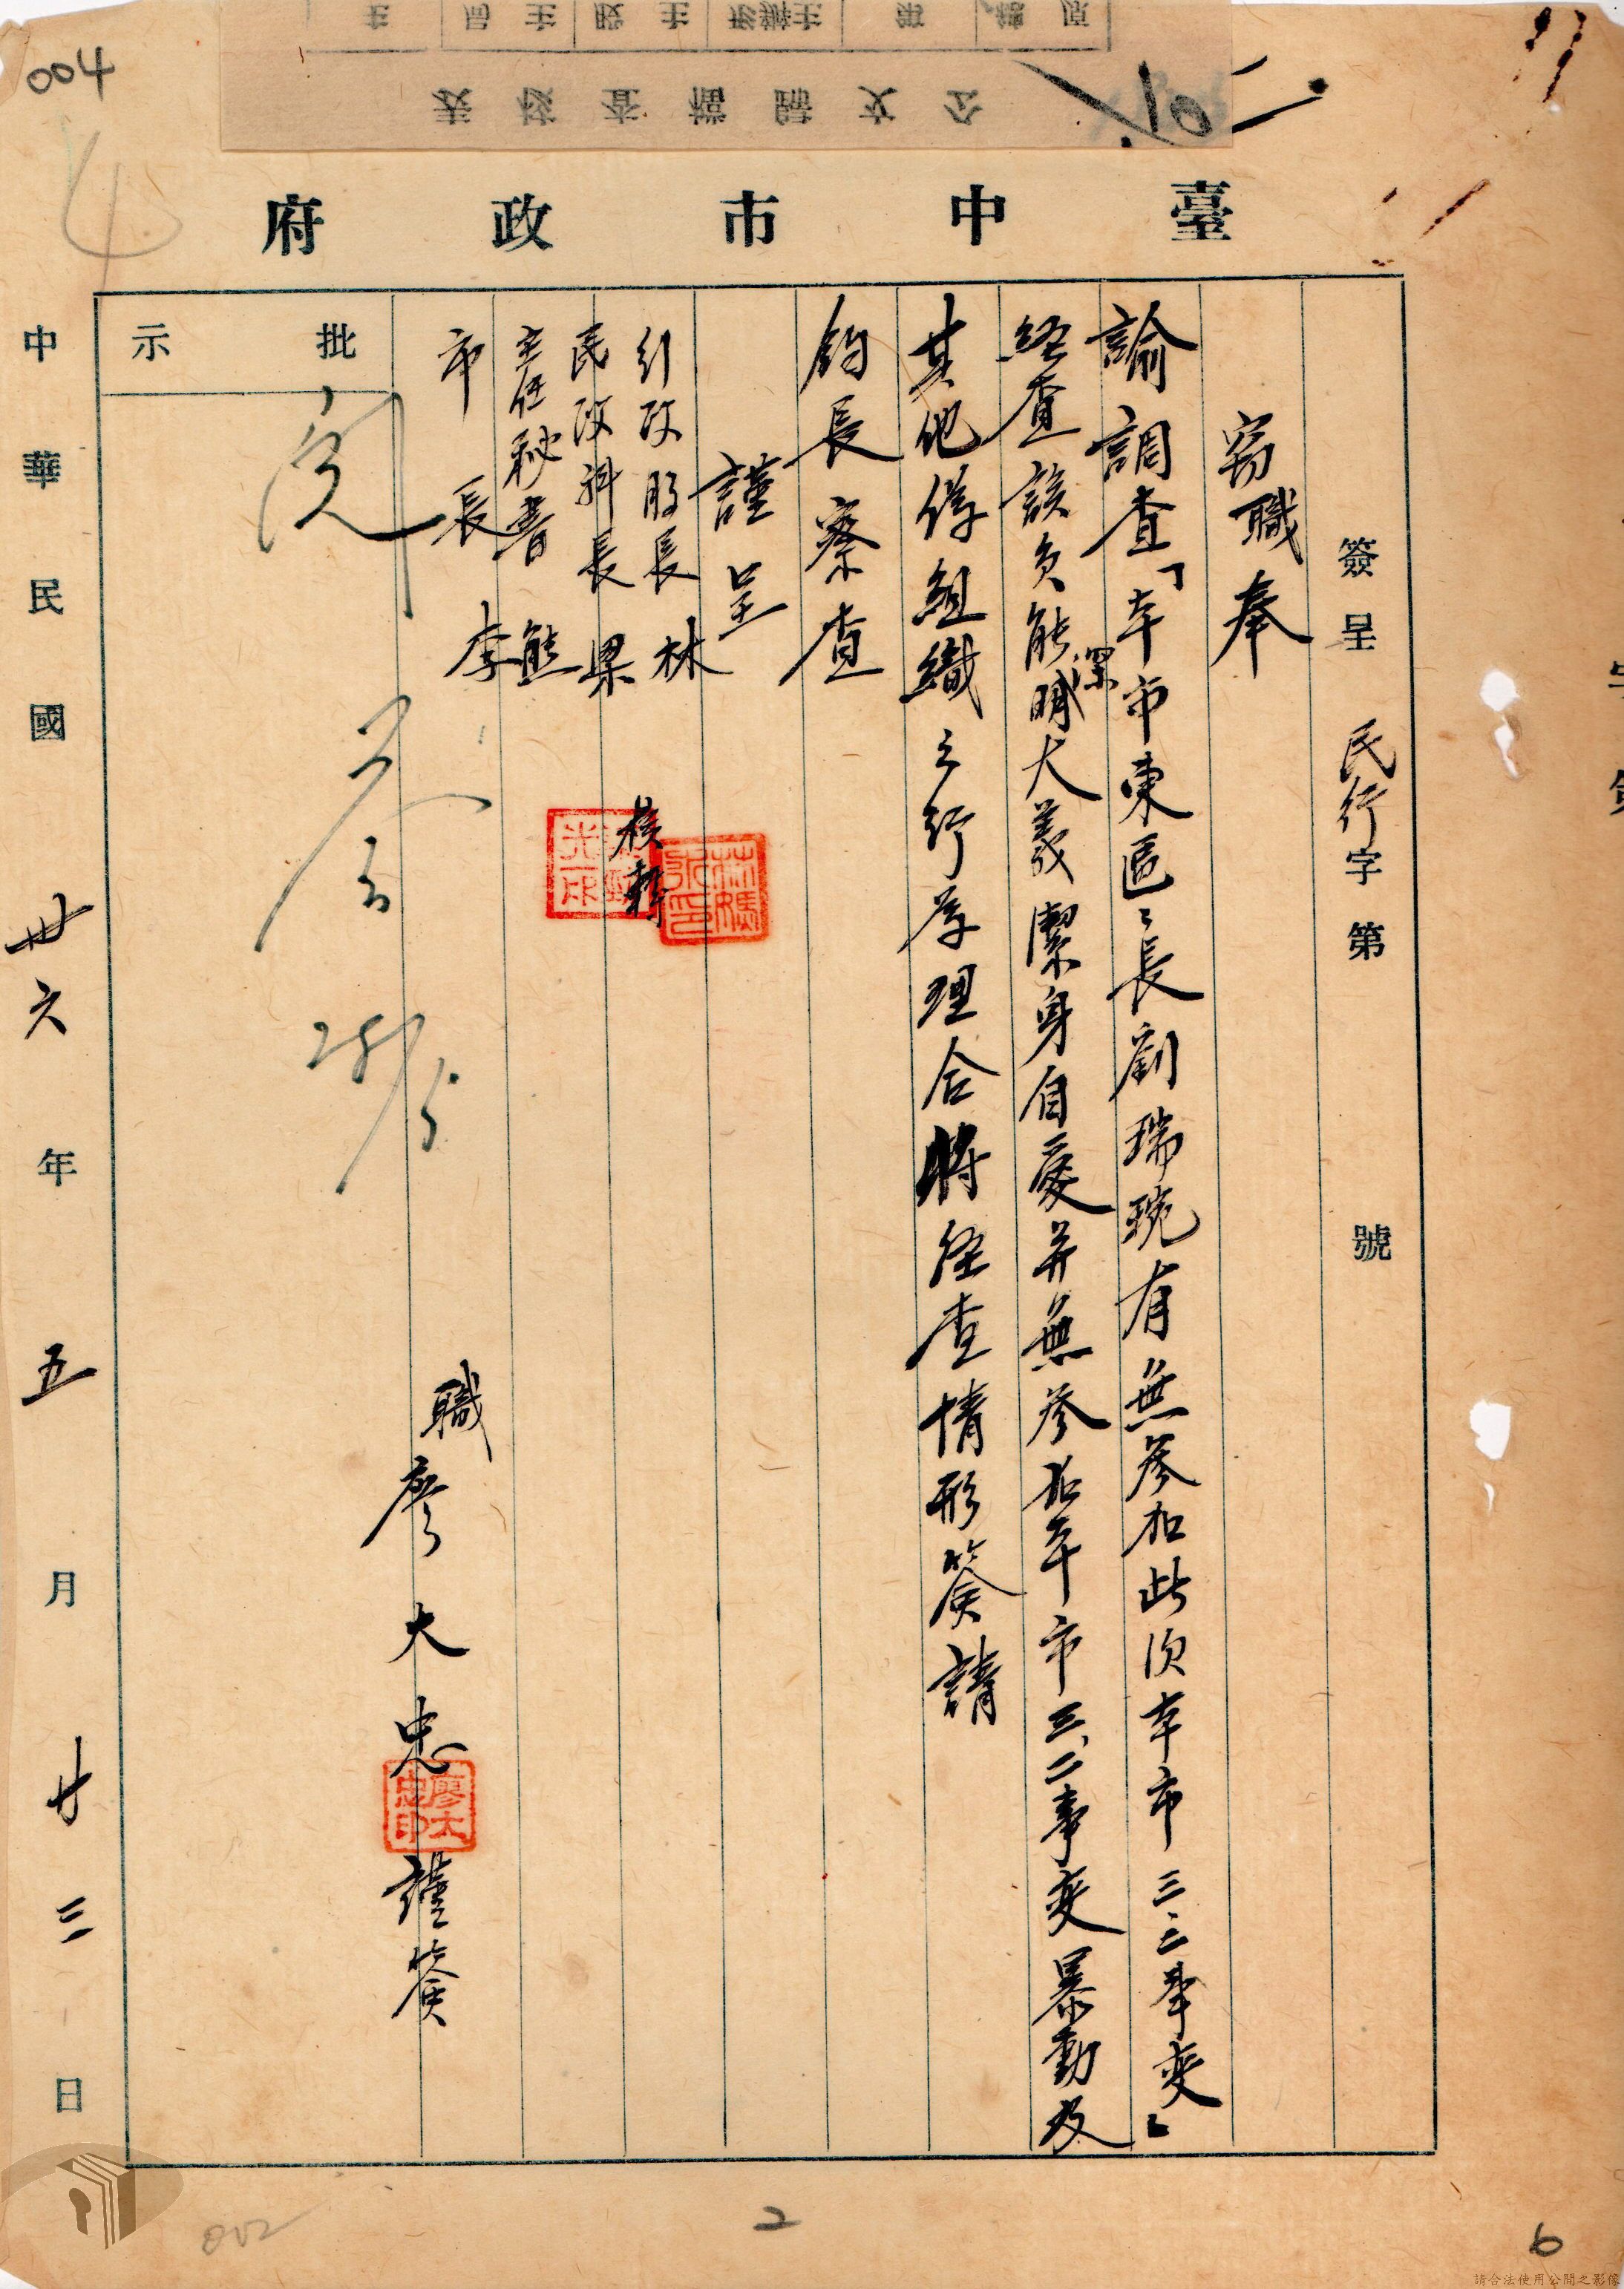 004
公文歸檔查核表
臺中市政府
簽呈 民行字第 號
竊職奉
諭調查「本市東區々長劉瑞琬有無參加此次本市三、二事變」
經查該員能深明大義潔身自愛并無參加本市三、二事變暴動及
其他偽組織之行為理合將經查情形簽請
鈞長察查
謹呈
行政股長 林
民政科長 梁
核轉
主任秘書 熊
市長 李
職廖大忠 謹簽
廖大忠印
批示
閱
中華民國卅六年五月廿三日
002
2
6
請合法使用公開之影像